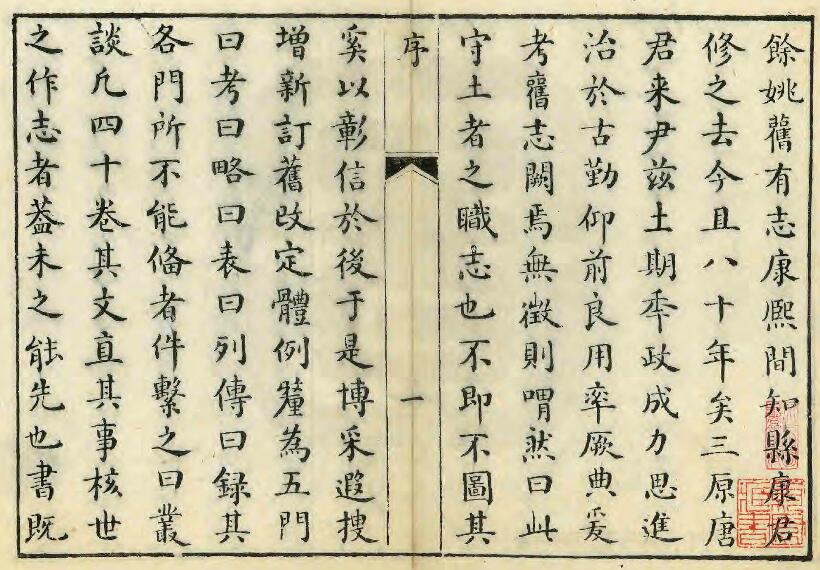 餘姚舊有志康熙間知縣康君
修之去今且八十年矣三原唐
君来尹茲土期年政成力思進
治於古勤仰前良用率厥典爰
考舊志闕焉無徵則喟然曰此
守土者之職志也不即不圖其
序
一
奚以彰信於後于是博采遐搜
增新訂舊改定體例釐為五門
曰考曰略曰表曰列傳曰録其
各門所不能俻者件繫之曰叢
談凡四十卷其文直其事核世
之作志者葢未之能先也書既